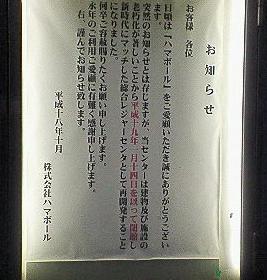 お知らせ
お客様 各位
日頃は『ハマボール』をご愛顧いただき誠にありがとうござい
ます。
突然のお知らせとは存じますが、当センターは建物及び施設の
老朽化が著しいことから平成十九年一月十四日を以って閉館し
新時代にマッチした総合レジャーセンタとして再開発すること
になりました。
何卒ご容赦賜りたくお願い申し上げます。
永年のご利用ご愛顧に有難く感謝申し上げます。
右、謹んでお知らせ致します。
平成十八年十月
株式会社ハマボール